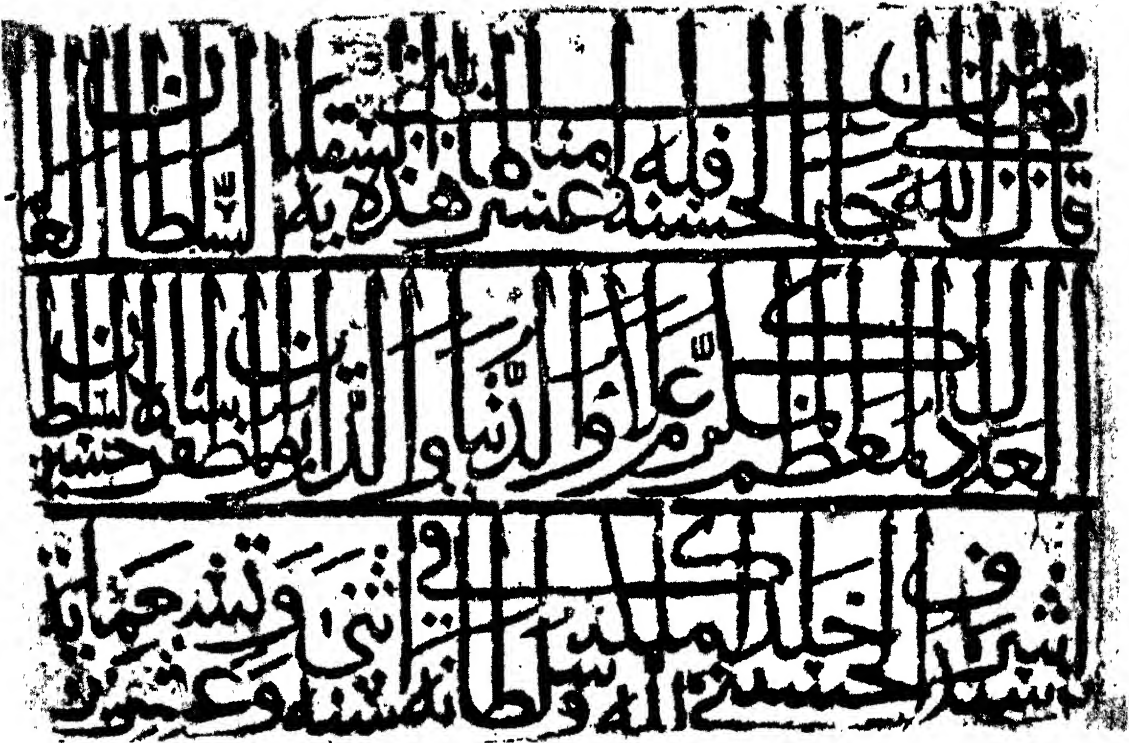 قال الله تعالى من جاء بالحسنة فله عشر امثالها بنى هذه السقاية السلطان
العادل المعظم المكرم علاء الدنيا والدين ابو المظفر حسين شاه السلطان بن
سيد اشرف الحسيني خلد الله ملكه وسلطانه في سنة اثنى وعشرين وتسعماية